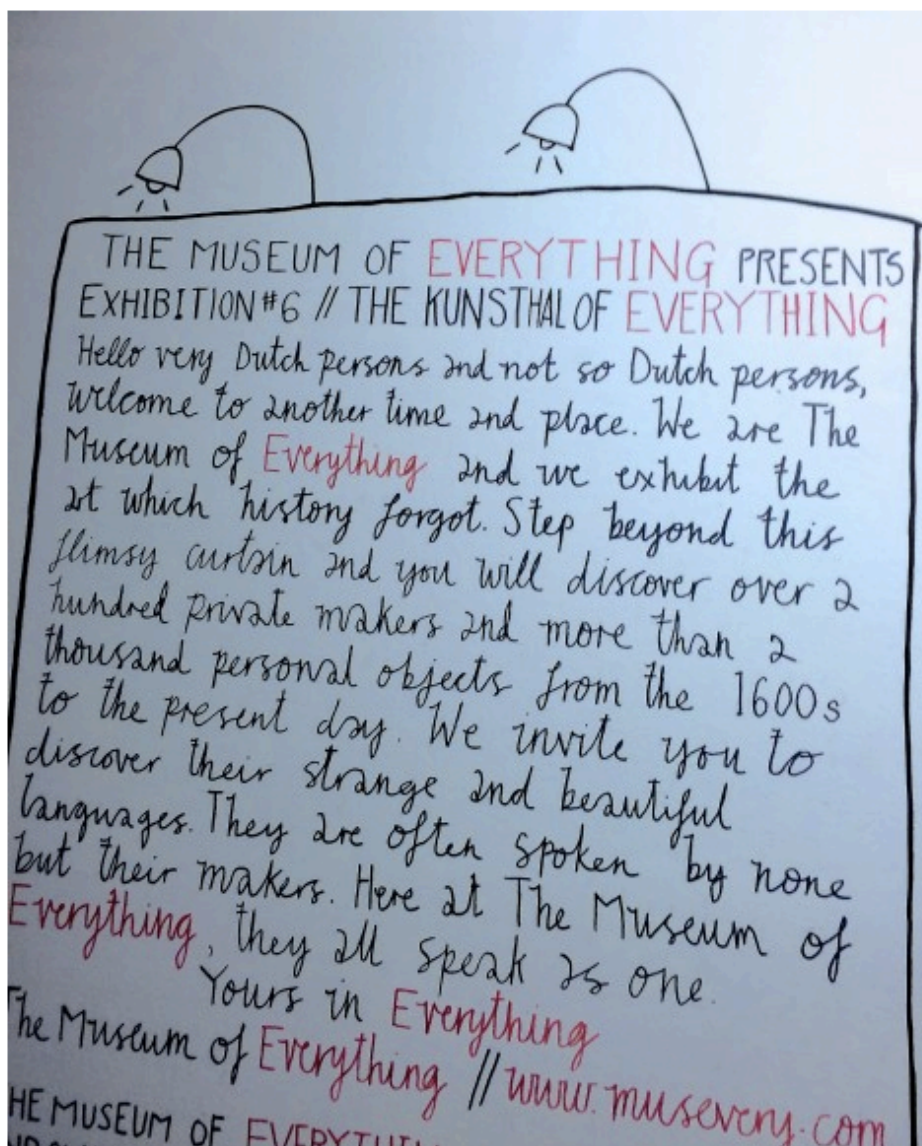 THE MUSEUM OF EVERYTHING PRESENTS
EXHIBITION #6 // THE KUNSTHAL OF EVERYTHING
Hello very Dutch persons and not so Dutch persons,
welcome to another time and place. We are The
Museum of Everything and we exhibit the
art which history forgot. Step beyond this
flimsy curtain and you will discover over a
hundred private makers and more than a
thousand personal objects from the 1600s
to the present day. We invite you to
discover their strange and beautiful
languages. They are often spoken by none
but their makers. Here at The Museum of
Everything, they all speak as one.
Yours in Everything
The Museum of Everything // www.musevery.com
HE MUSEUM OF EVERYTHING